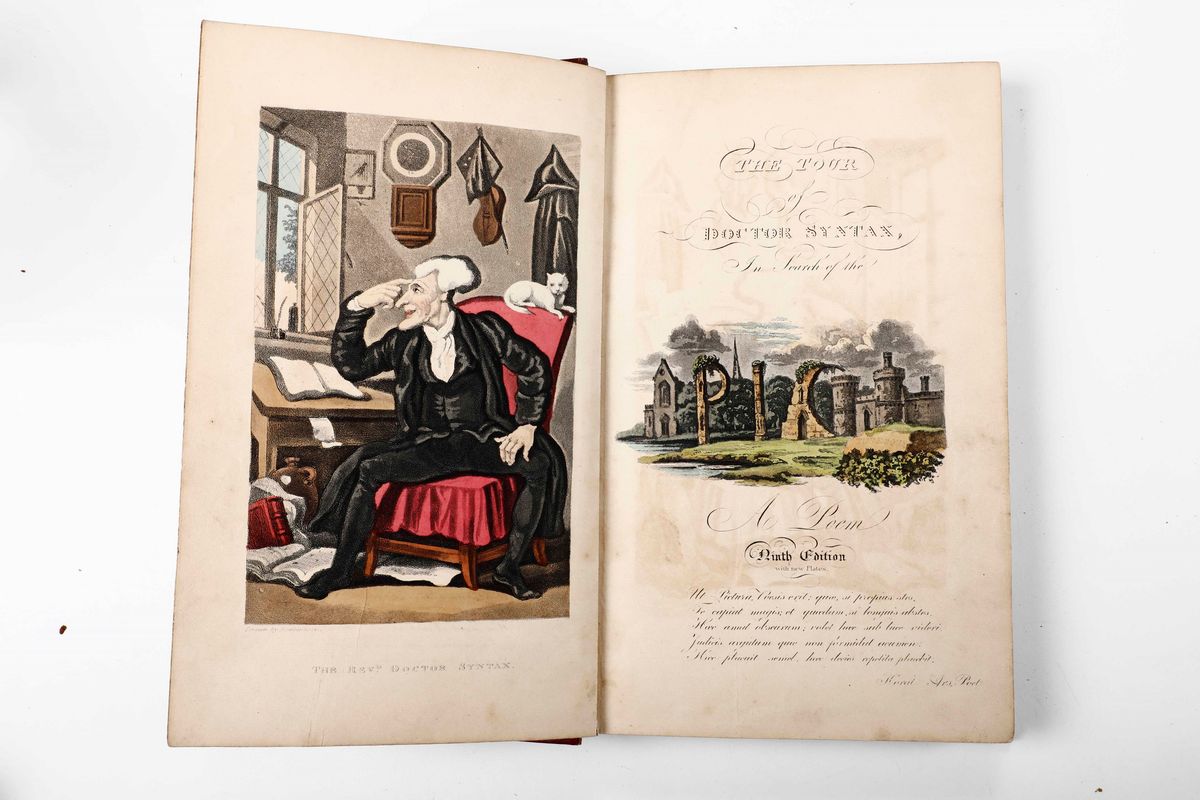 THE REVD. DOCTOR SYNTAX.
THE TOUR
of
DOCTOR SYNTAX,
In Search of the
PIC
A Poem
Ninth Edition
with new Plates.
Ut Pictura, Poesis erit; quæ, si propius stes,
Te capiat magis; et quædam, si longius abstes.
Hæc amat obscurum; volet hæc sub luce videri
Judicis argutum quæ non formidat acumen:
Hæc placuit semel, hæc decies repetita placebit.
Horat. Ars, Poet